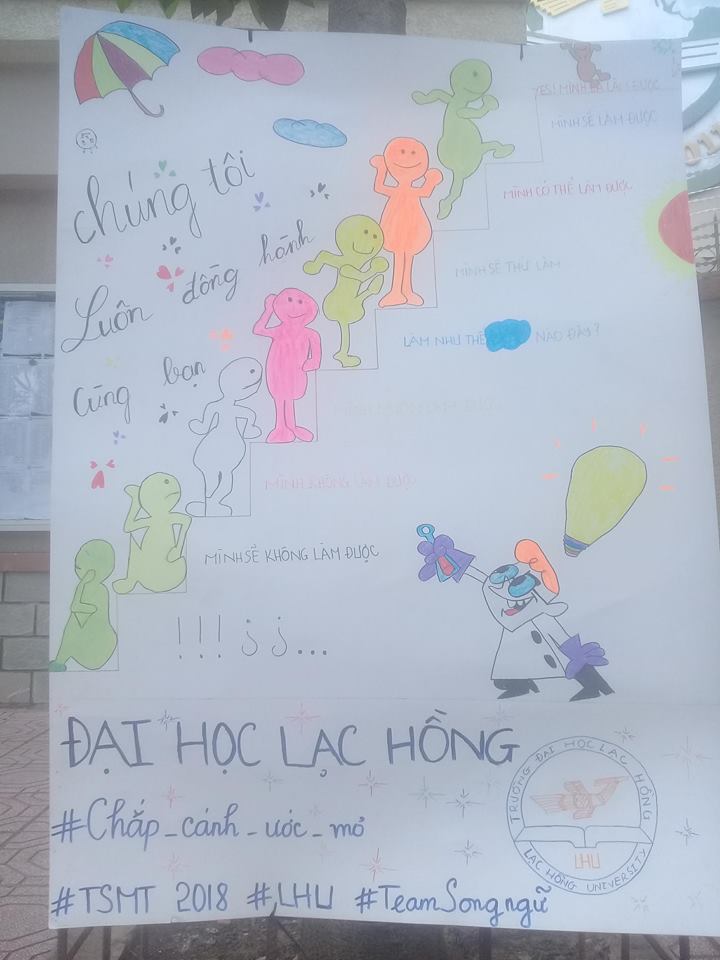 YES! MÌNH ĐÃ LÀM ĐƯỢC
MÌNH SẼ LÀM ĐƯỢC
MÌNH CÓ THỂ LÀM ĐƯỢC
MÌNH SẼ THỬ LÀM
LÀM NHƯ THẾ NÀO ĐÂY?
MÌNH KHÔNG LÀM ĐƯỢC
MÌNH SẼ KHÔNG LÀM ĐƯỢC
!!!¿¿...
chúng tôi
Luôn đồng hành
Cùng bạn
ĐẠI HỌC LẠC HỒNG
#Chắp_cánh_ước_mơ
#TSMT 2018 #LHU #TeamSongngữ
TRƯỜNG ĐẠI HỌC LẠC HỒNG
LHU
LẠC HỒNG UNIVERSITY